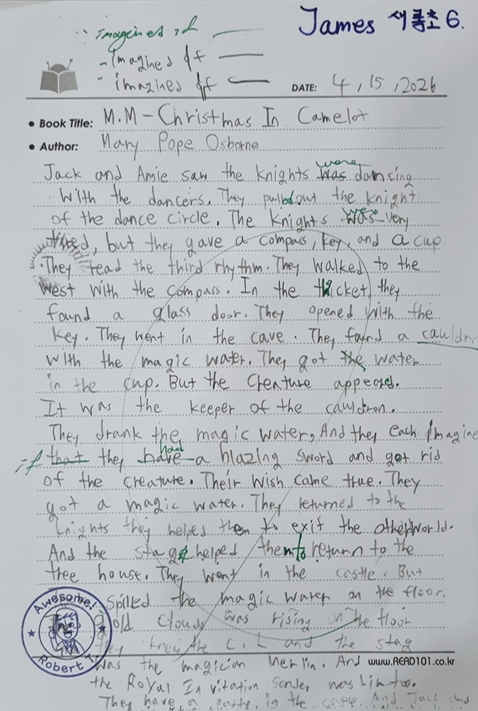 James 새 6.
imagined if
- imagined if
- imagined if
DATE: 4, 15, 2026
• Book Title: M.M - Christmas In Camelot
• Author: Mary Pope Osborne
were
Jack and Amie saw the knights was dancing
with the dancers. They pulled out the knight
of the dance circle. The knights was very
tired, but they gave a compass, key, and a cup.
They read the third rhythm. They walked to the
west with the compass. In the thicket, they
found a glass door. They opened with the
key. They went in the cave. They found a cauldron
with the magic water. They got the water
in the cup. But the creature appears.
It was the keeper of the cauldron.
They drank the magic water, And they each imagine
had
if that they have a blazing sword and got rid
of the creature. Their wish came true. They
got a magic water. They returned to the
knights they helped them to exit the otherworld.
And the stag helped them to return to the
tree house. They went in the castle. But
spilled the magic water on the floor.
Clouds was rising on the floor
knew the C.L and the stag
was the magician Merlin. And
www.READ101.co.kr
the Royal Invitation sender was him too.
They have a party in the castle. And Jack and
Awesome!
Robert T.